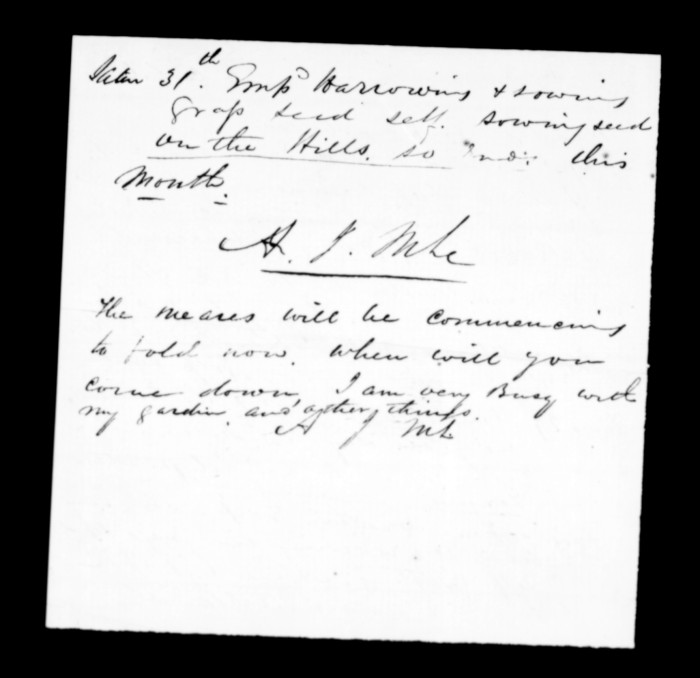 Satur 31th. Emps Harrowing & sowing
grass seed self. sowing seed
on the Hills. so ends this
Month.
A. J. McL
The meares will be commencing
to fold now. when will you
come down, I am very Busy with
my garden, and other things.
A J McL